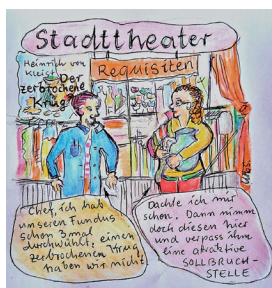 Stadttheater
Heinrich von
Kleist
Der
zerbrochene
Krug
Requisiten
Chef, ich hab
unseren Fundus
schon 3mal
durchwühlt: einen
zerbrochenen Krug
haben wir nicht
Dachte ich mir
schon. Dann nimm
doch diesen hier
und verpass ihm
eine atraktive
SOLLBRUCH-
STELLE